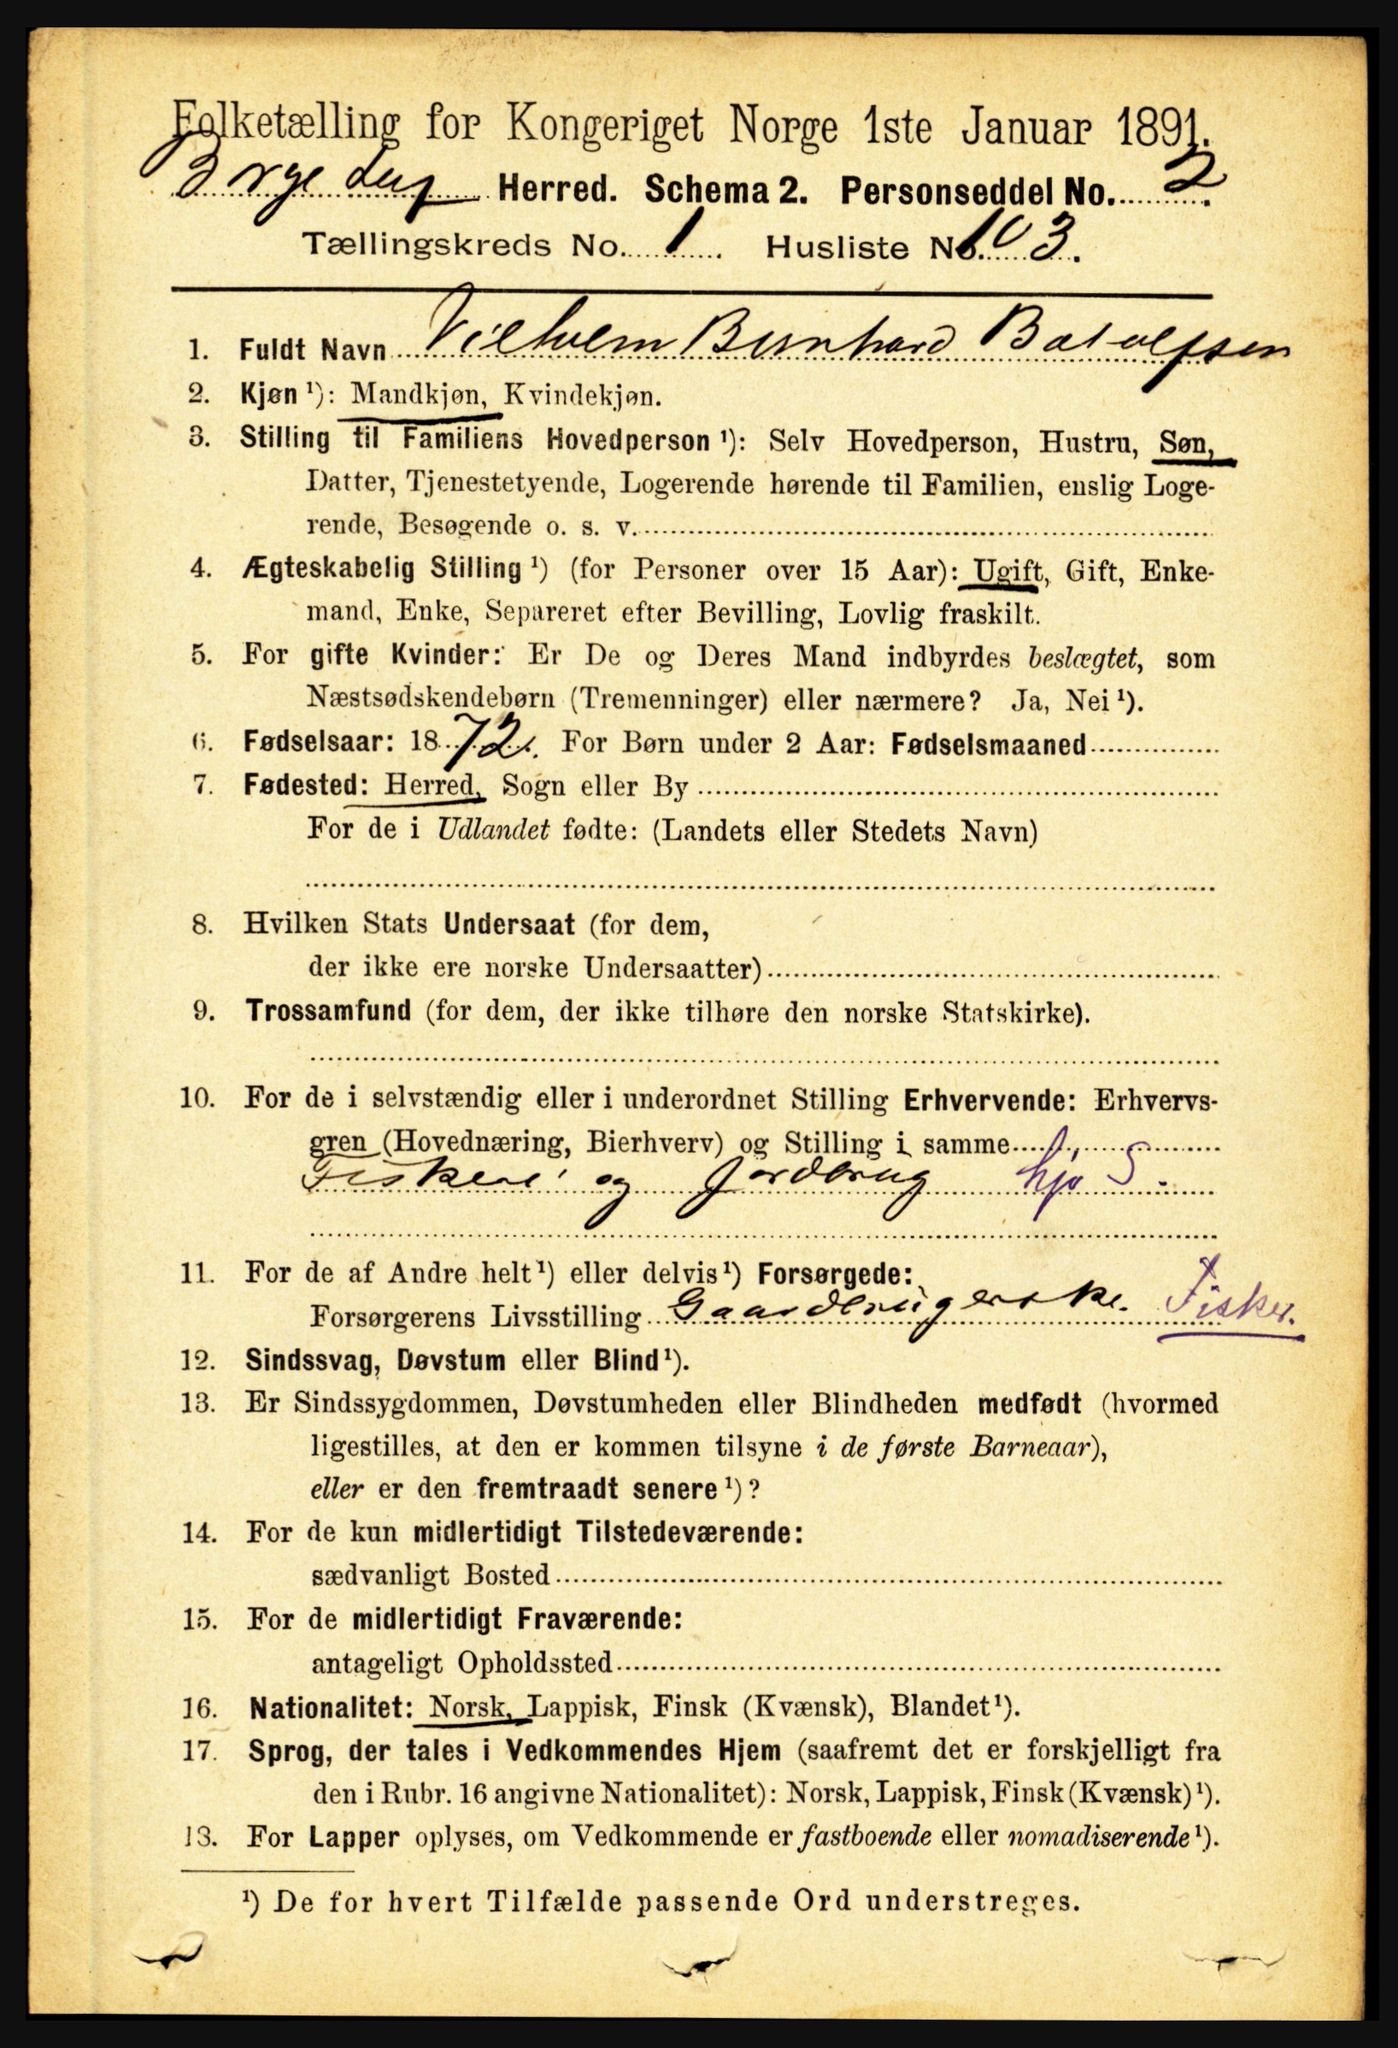 Folketælling for Kongeriget Norge 1ste Januar 1891.
Borge Herred. Schema 2. Personseddel No. 2.
Tællingskreds No. 1. Husliste No. 103.
1. Fuldt Navn Vilhelm Bernhard Batolfsen
2. Kjøn ¹): Mandkjøn, Kvindekjøn.
3. Stilling til Familiens Hovedperson ¹): Selv Hovedperson, Hustru, Søn,
Datter, Tjenestetyende, Logerende hørende til Familien, enslig Loge-
rende, Besøgende o. s. v.
4. Ægteskabelig Stilling ¹) (for Personer over 15 Aar): Ugift, Gift, Enke-
mand, Enke, Separeret efter Bevilling, Lovlig fraskilt.
5. For gifte Kvinder: Er De og Deres Mand indbyrdes beslægtet, som
Næstsødskendebørn (Tremenninger) eller nærmere? Ja, Nei ¹).
6. Fødselsaar: 1872. For Børn under 2 Aar: Fødselsmaaned
7. Fødested: Herred, Sogn eller By
For de i Udlandet fødte: (Landets eller Stedets Navn)
8. Hvilken Stats Undersaat (for dem,
der ikke ere norske Undersaatter)
9. Trossamfund (for dem, der ikke tilhøre den norske Statskirke).
10. For de i selvstændig eller i underordnet Stilling Erhvervende: Erhvervs-
gren (Hovednæring, Bierhverv) og Stilling i samme
Fiskeri og Jordbrug hjo S.
11. For de af Andre helt ¹) eller delvis ¹) Forsørgede:
Forsørgerens Livsstilling Gaardbrugerske. Fisker.
12. Sindssvag, Døvstum eller Blind ¹).
13. Er Sindssygdommen, Døvstumheden eller Blindheden medfødt (hvormed
ligestilles, at den er kommen tilsyne i de første Barneaar),
eller er den fremtraadt senere ¹)?
14. For de kun midlertidigt Tilstedeværende:
sædvanligt Bosted
15. For de midlertidigt Fraværende:
antageligt Opholdssted
16. Nationalitet: Norsk, Lappisk, Finsk (Kvænsk), Blandet ¹).
17. Sprog, der tales i Vedkommendes Hjem (saafremt det er forskjelligt fra
den i Rubr. 16 angivne Nationalitet): Norsk, Lappisk, Finsk (Kvænsk) ¹).
18. For Lapper oplyses, om Vedkommende er fastboende eller nomadiserende ¹).
¹) De for hvert Tilfælde passende Ord understreges.